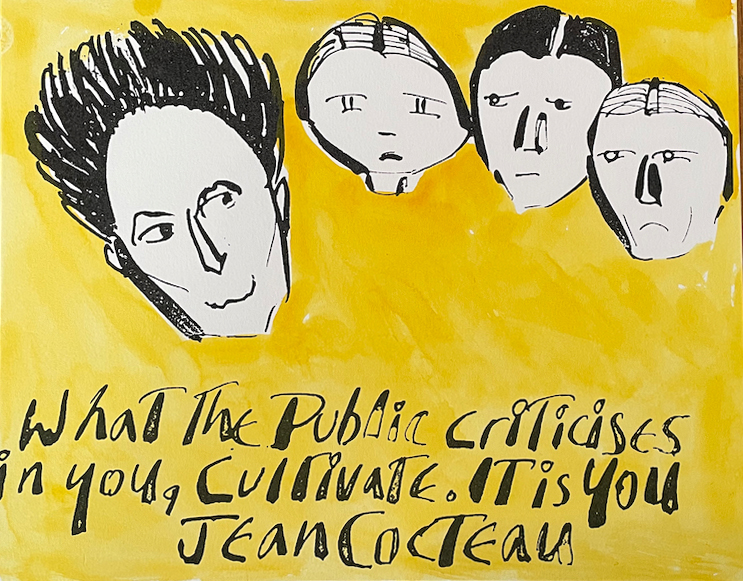 What The Public criticises
in you, Cultivate. IT is You
JEan CocTEau